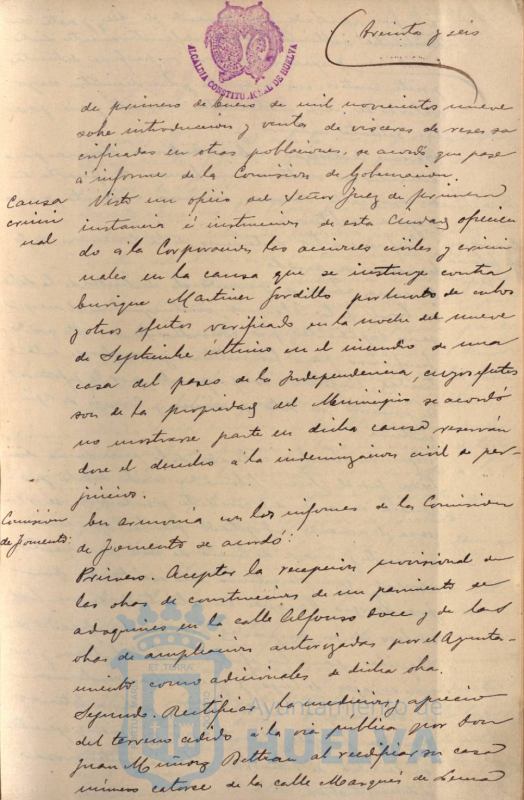 Treinta y seis
ALCALDIA CONSTITUCIONAL DE HUELVA
de primero de Enero de mil novecientos nueve
sobre introduccion y ventas de visceras de reses sa
crificadas en otras poblaciones, se acordó que pase
á informe de la Comision de Gobernacion.
Causa
crimi
nal
Visto un oficio del Señor Juez de primera
instancia é instruccion de esta Ciudad ofrecien
do á la Corporacion las acciones civiles y crimi
nales en la causa que se instruye contra
Enrique Martinez Gordillo por hurto de cubos
y otros efectos verificado en la noche del nueve
de Septiembre último en el incendio de una
casa del paseo de la Independencia, cuyos efectos
son de la propiedad del Municipio se acordó
no mostrarse parte en dicha causa reserván
dose el derecho á la indemnizacion civil de per-
juicios.
Comision
de Fomento.
En armonía con los informes de la Comision
de Fomento se acordó:
Primero. Aceptar la recepcion provisional de
las obras de construccion de un pavimento de
adoquines en la calle Alfonso doce y de las
obras de ampliacion autorizadas por el Ayunta-
miento como adicionales de dicha obra.
Segundo. Rectificar la medicion y aprecio
del terreno cedido á la via publica por Don
Juan Muñoz Beltran al reedificar su casa
número catorse de la calle Marqués de
ET TERRA
Ayuntamiento de
HUELVA